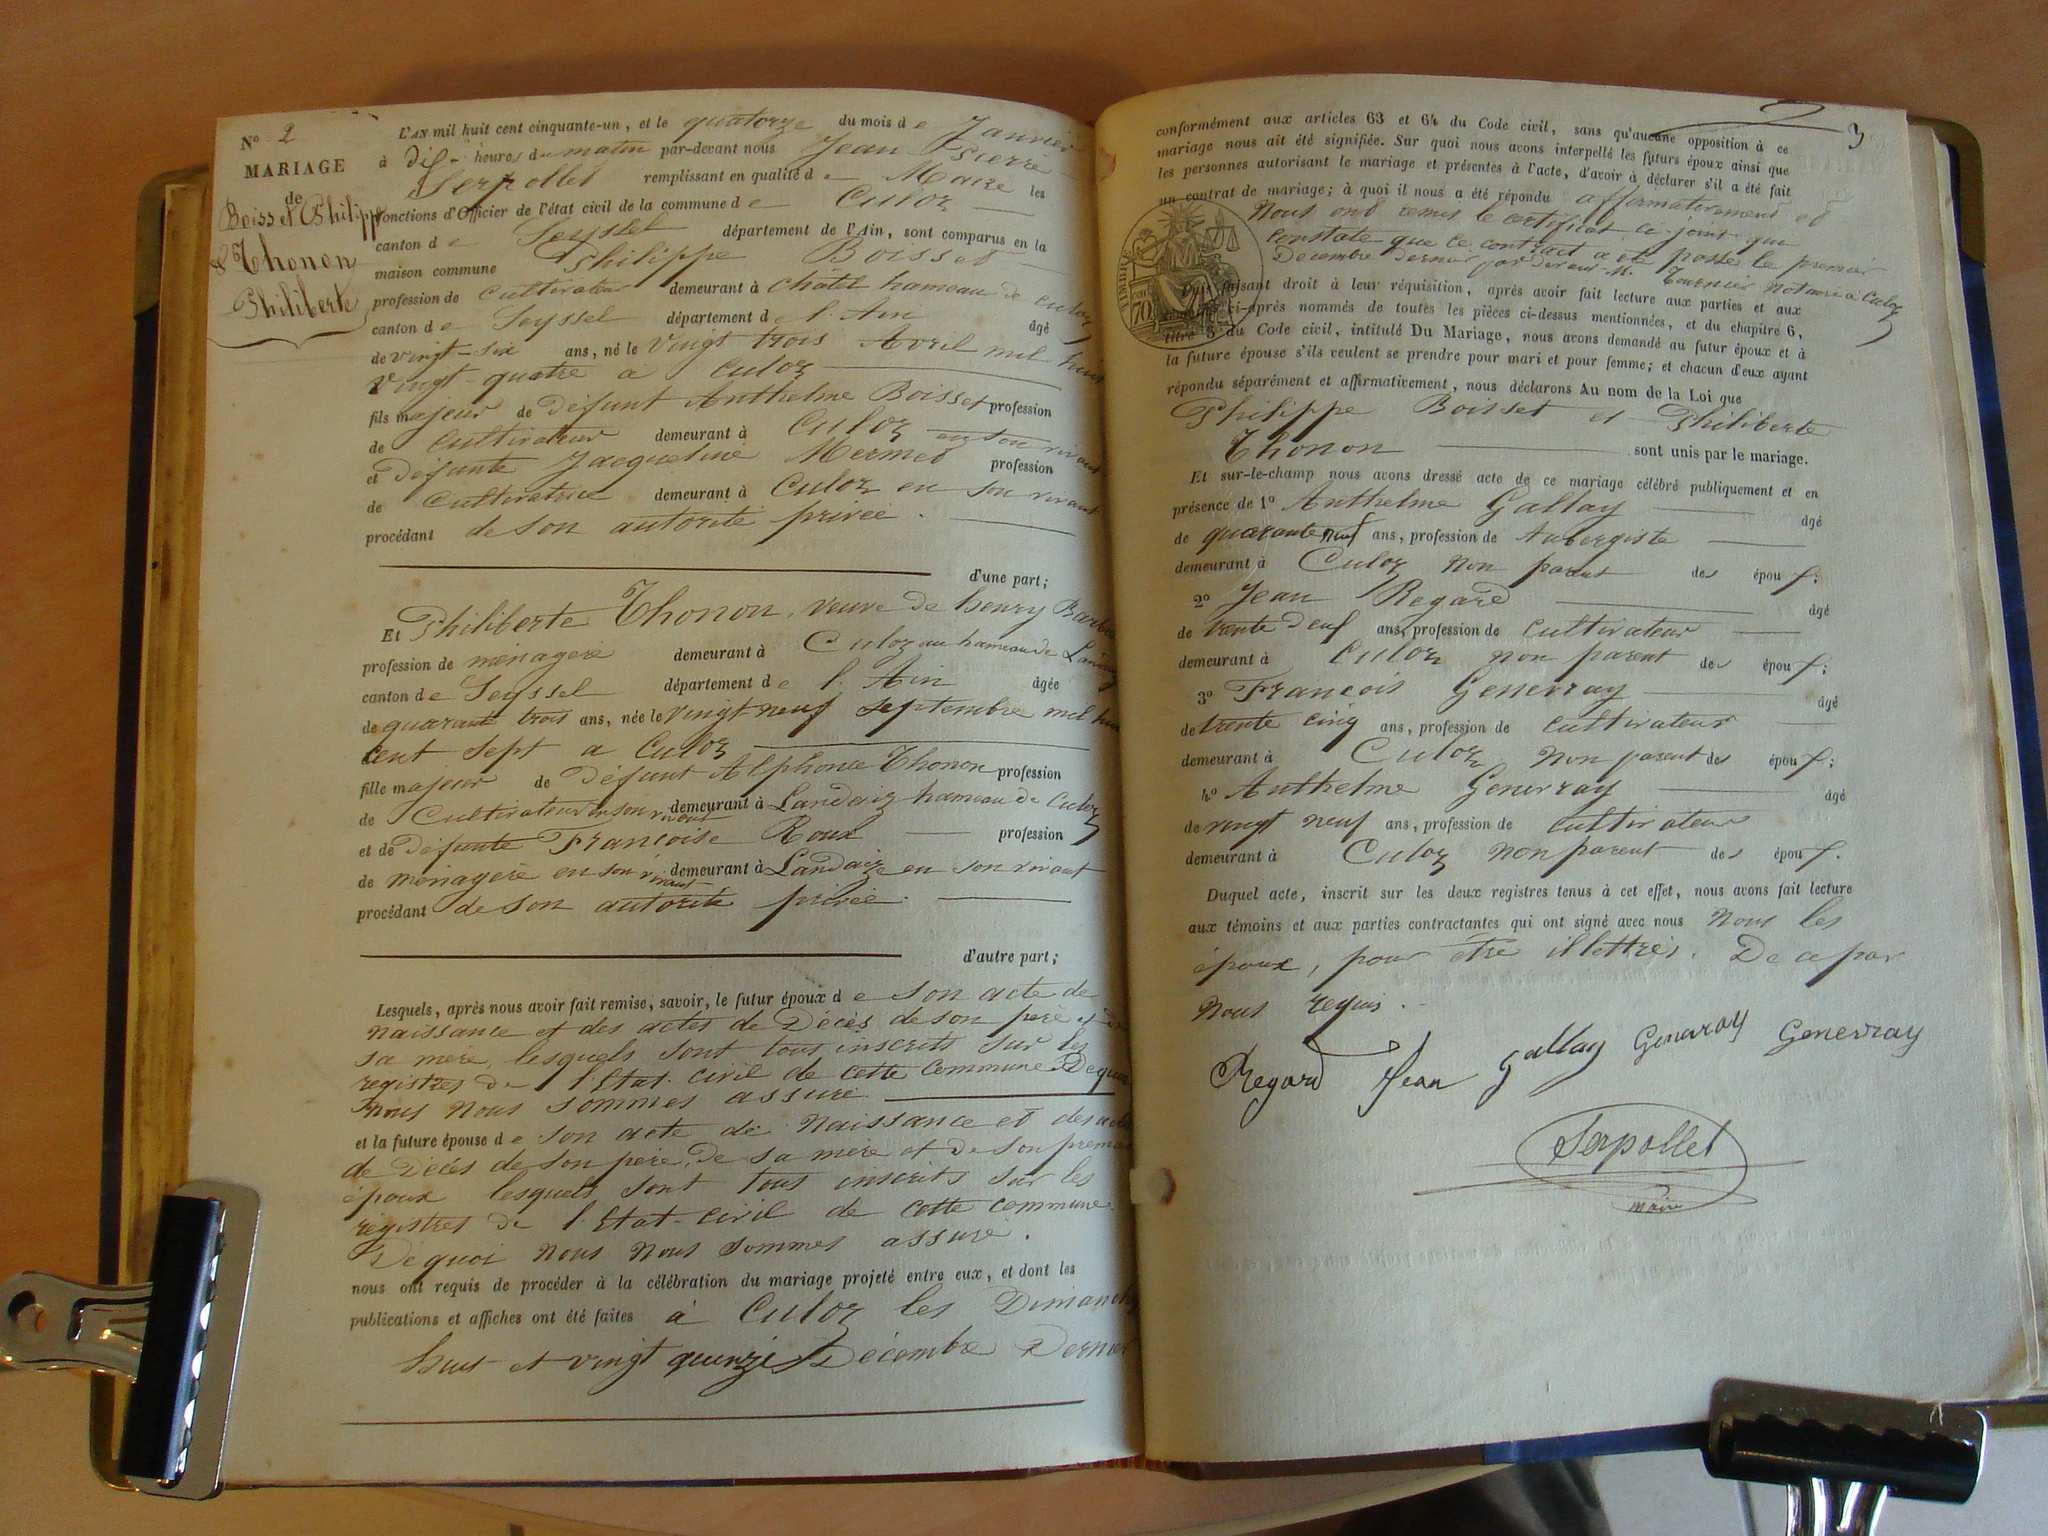 N° 2
MARIAGE
de
Boisset Philippe
& Thonon
Philiberte
L'AN mil huit cent cinquante-un, et le quatorze du mois de Janvier
à dix heures du matin par-devant nous Jean Pierre
Serpollet remplissant en qualité de Maire les
fonctions d'Officier de l'état civil de la commune de Culoz
canton de Seyssel département de l'Ain, sont comparus en la
maison commune Philippe Boisset
profession de cultivateur demeurant à châtel hameau de Culoz
canton de Seyssel département de l'Ain âgé
de vingt-six ans, né le vingt trois Avril mil huit
vingt-quatre à Culoz
fils majeur de défunt Anthelme Boisset profession
de cultivateur demeurant à Culoz en son vivant
et défunte Jacqueline Mermet profession
de cultivatrice demeurant à Culoz en son vivant
procédant de son autorité privée.
d'une part;
Et Philiberte Thonon, veuve de henry
profession de ménagère demeurant à Culoz au hameau de
canton de Seyssel département de l'Ain âgée
de quarante trois ans, née le vingt neuf septembre mil huit
cent sept a Culoz
fille majeur de défunt Alphonce Thonon profession
de Cultivateur en son vivant demeurant à Landaiz hameau de Culoz
et de défunte Françoise Roux profession
de ménagère en son vivant demeurant à Landaize en son vivant
procédant de son autorité privée.
d'autre part;
Lesquels, après nous avoir fait remise, savoir, le futur époux de son acte de
naissance et des actes de Décès de son père et de
sa mère, lesquels sont tous inscrits sur les
registres de l'Etat-civil de cette commune Dequoi
nous nous sommes assuré.
et la future épouse de son acte de naissance et des actes
de Décès de son père, de sa mère et de son premier
époux lesquels sont tous inscrits sur les
registres de l'Etat-civil de cette commune.
Dequoi nous nous sommes assuré.
nous ont requis de procéder à la célébration du mariage projeté entre eux, et dont les
publications et affiches ont été faites à Culoz les Dimanches
huit et vingt quinze Décembre Dernier
3
conformément aux articles 63 et 64 du Code civil, sans qu'aucune opposition à ce
mariage nous ait été signifiée. Sur quoi nous avons interpellé les futurs époux ainsi que
les personnes autorisant le mariage et présentes à l'acte, d'avoir à déclarer s'il a été fait
un contrat de mariage; à quoi il nous a été répondu affirmativement et
nous ont remis le certificat ci-joint qui
constate que ce contrat a été passé le premier
Décembre dernier par devant M. Tournier notaire à Culoz
Puis faisant droit à leur réquisition, après avoir fait lecture aux parties et aux
ci-après nommés de toutes les pièces ci-dessus mentionnées, et du chapitre 6,
titre 5 du Code civil, intitulé Du Mariage, nous avons demandé au futur époux et à
la future épouse s'ils veulent se prendre pour mari et pour femme; et chacun d'eux ayant
répondu séparément et affirmativement, nous déclarons Au nom de la Loi que
Philippe Boisset et Philiberte
Thonon sont unis par le mariage.
Et sur-le-champ nous avons dressé acte de ce mariage célébré publiquement et en
présence de 1° Anthelme Gallay âgé
de quarante neuf ans, profession de Aubergiste
demeurant à Culoz non parent des époux;
2° Jean Regard âgé
de trente deuf ans, profession de cultivateur
demeurant à Culoz non parent des époux;
3° François Genevray âgé
de trente cinq ans, profession de cultivateur
demeurant à Culoz non parent des époux;
4° Anthelme Genevray âgé
de vingt neuf ans, profession de cultivateur
demeurant à Culoz non parent des époux.
Duquel acte, inscrit sur les deux registres tenus à cet effet, nous avons fait lecture
aux témoins et aux parties contractantes qui ont signé avec nous Nous les
époux, pour être illettrés. De ce par
nous requis.
Regard Jean Gallay Genevray Genevray
Serpollet
maire